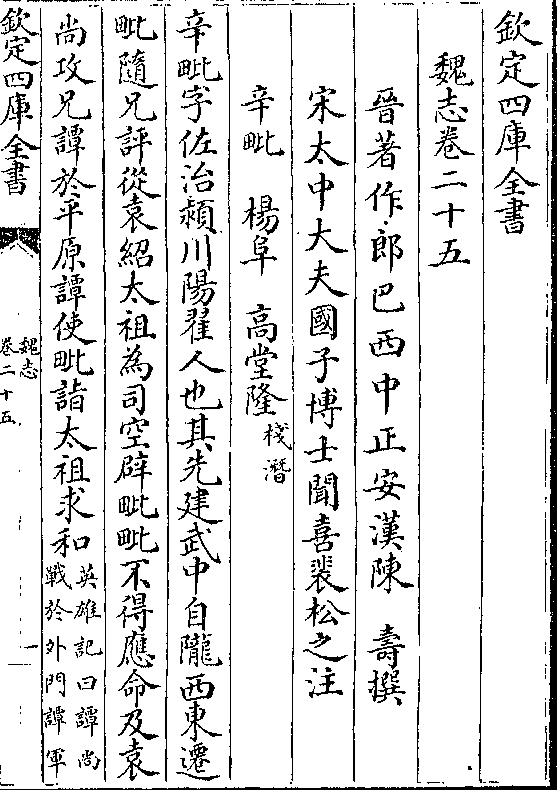 欽定四庫全書
魏志卷二十五
晉著作郎巴西中正安漢陳　壽撰
宋太中大夫國子博士聞喜裴松之注
辛毗　楊阜　高堂隆棧潛
辛毗字佐治潁川陽翟人也其先建武中自隴西東遷
毗隨兄評從袁紹太祖為司空辟毗毗不得應命及袁
尚攻兄譚於平原譚使毗詣太祖求和英雄記曰譚尚
戰於外門譚軍
欽定四庫全書
魏志
卷二十五
一